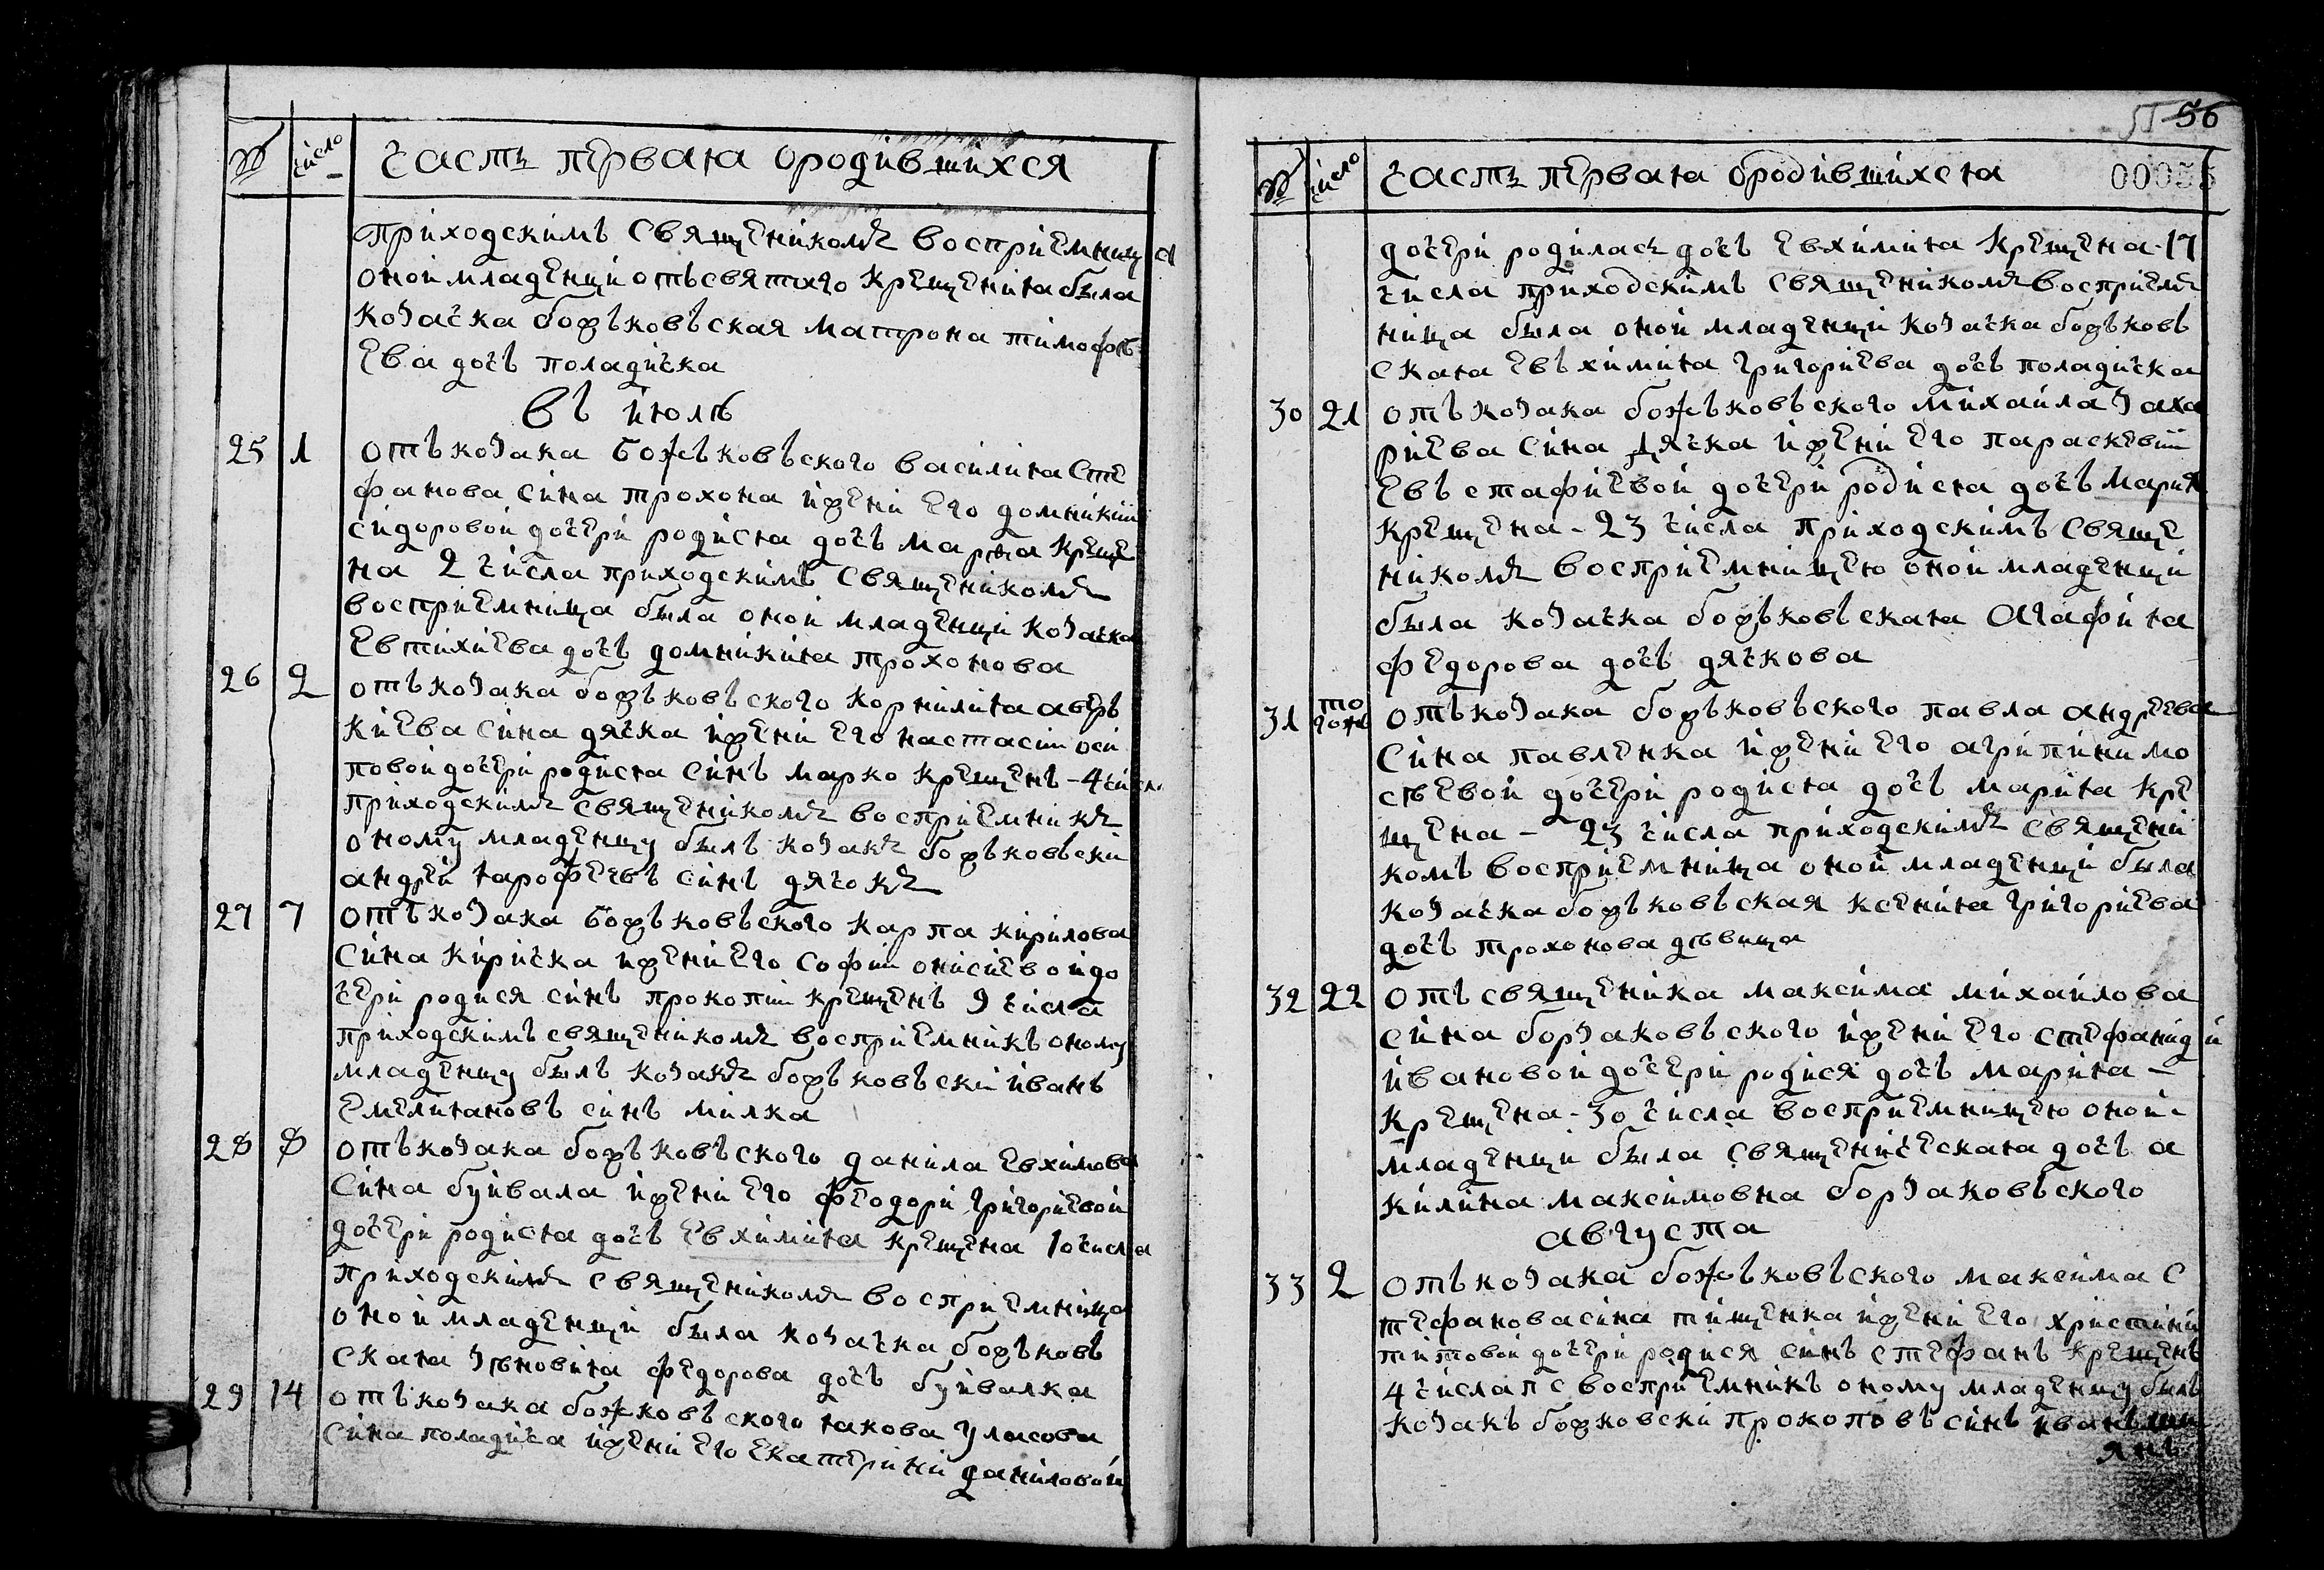 № число часть первая ородившихся
приходскимъ священикомъ восприемница
оной младенци отъ святого крещения была
козачка божъковъская матрона тимофѣ
ева дочъ поладичка
въ июлѣ
25 1 отъ козака божъковъского василия сте
фанова сина трохона и жени его домникии
сидоровой дочери родися дочъ марфа креще
на 2 числа приходскимъ священикомъ
восприемница была оной младенци козачка
евтихиева дочъ домникия трохонова
26 2 отъ козака божъковъского корнилия аверъ
киева сина дячка и жени его настасии оси
повой дочери родися синъ марко крещенъ - 4 числ
приходскимъ священикомъ восприемникъ
оному младенцу былъ козакъ божъковъски
андрей ярофеевъ синъ дячокъ
27 7 отъ козака божъковъского карпа кирилова
сина киричка и жени его софии онисиевой до
чери родися синъ прокопии крещенъ 9 числа
приходскимъ священикомъ восприемникъ оному
младенцу былъ козакъ божъковъски иванъ
емелияновъ синъ милка
28 8 отъ козака божъковъского данила евхимова
сина буйвала и жени его феодори григориевой
дочери родися дочъ евхимия крещена 10 числа
приходскимъ священикомъ восприемница
оной младенци была козачка божъковъ
ская зѣновия федорова дочъ буйвалка
29 14 отъ козака божковъского якова уласова
сина поладича и жени его екатерини даниловой
56
№ число часть первая ородившихся 00055
дочери родилась дочъ евхимия крещена - 17
числа приходскимъ священикомъ восприем
ница была оной младенци козачка божъковъ
ская евъхимия григориева дочъ поладичка
30 21 отъ козака божъковъского михаила заха
риева сина дячка и жени его параскевии
евъстафиевой дочери родися дочъ мария
крещена - 23 числа приходскимъ свяще
никомъ восприемницею оной младенци
была козачка божъковъская агафия
федорова дочъ дячкова
31 то гожъ отъ козака божъковъского павла андреева
сина павленка и жени его агрипини мо
сѣевой дочери родися дочъ мария кре
щена - 23 числа приходскимъ священи
комъ восприемница оной младенци была
козачка божъковъская ксения григориева
дочъ трохонова дѣвица
32 22 отъ священика максима михаилова
сина борзаковъского и жени его стефаниди
ивановой дочери родися дочъ мария -
крещена - 30 числа восприемницею оной -
младенци была священическая дочъ а
килина максимовна борзаковъского
августа
33 2 отъ козака божъковъского максима с
тефанова сина тищенка и жени его христини
титовой дочери родися синъ стефанъ крещенъ
4 числа п с восприемникъ оному младенцу былъ
козакъ божковски прокоповъ синъ иванъ
янъ